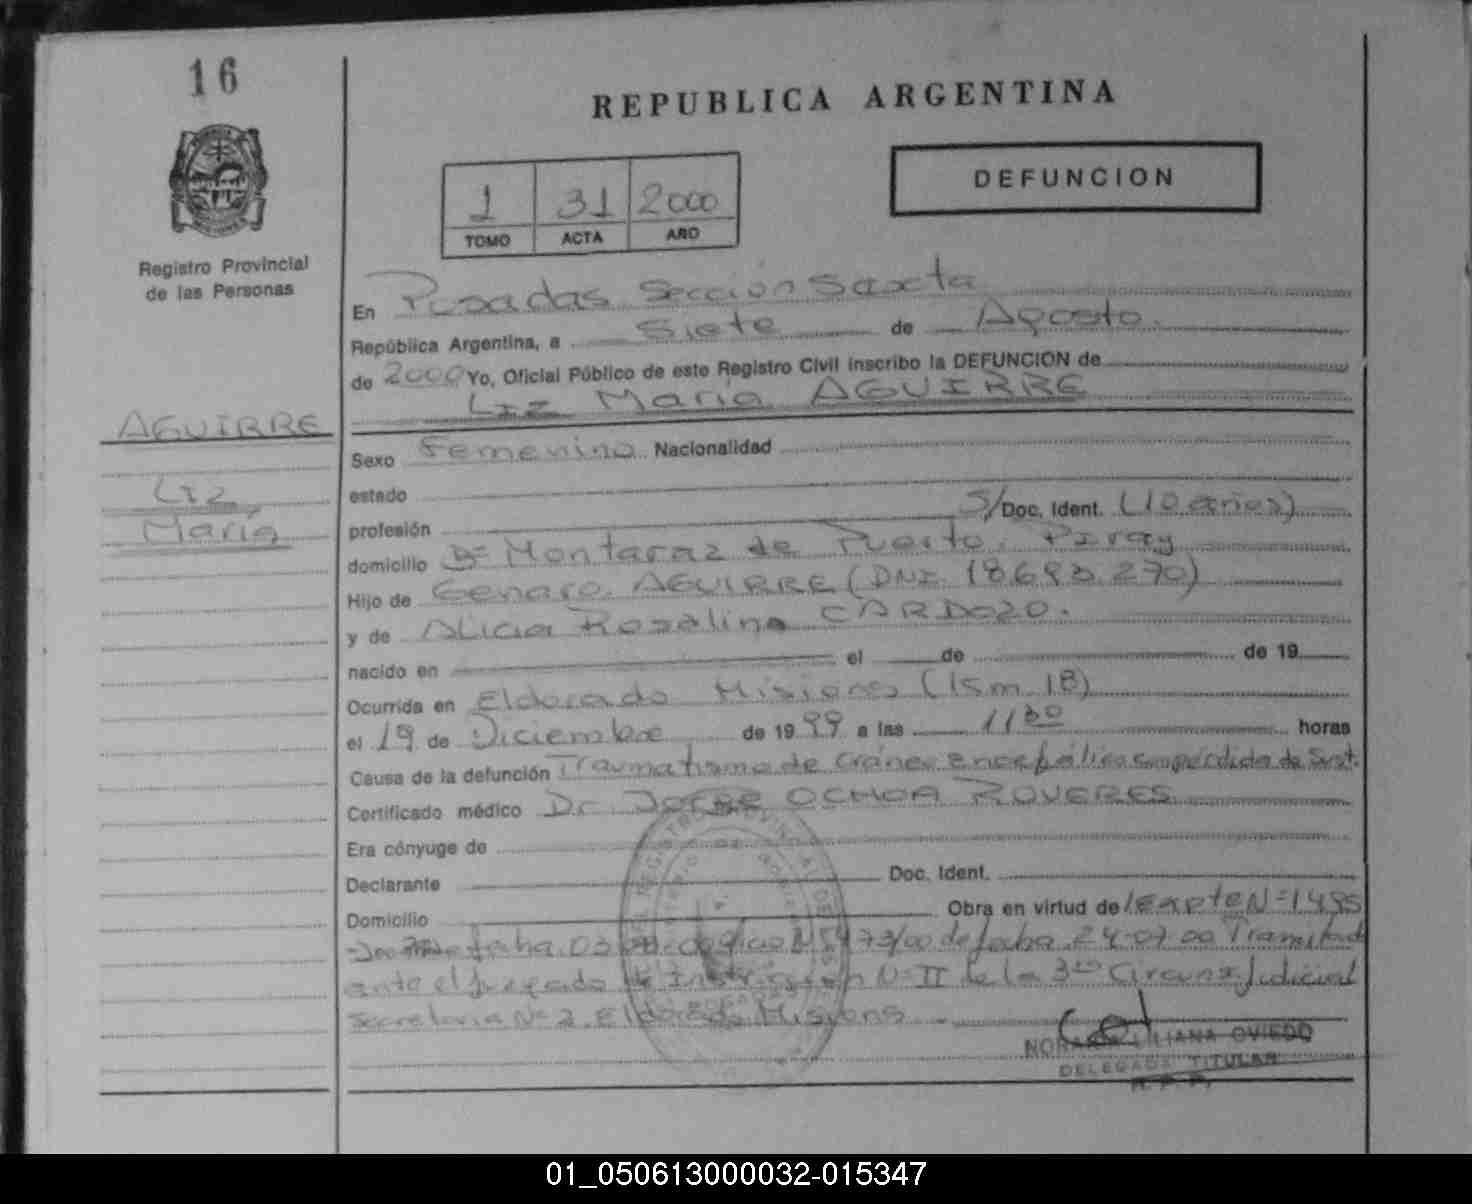 16
REPUBLICA ARGENTINA
DEFUNCION
1 31 2000
TOMO ACTA AÑO
Registro Provincial
de las Personas
En Posadas Sección Sexta
República Argentina, a Siete de Agosto
de 2000 Yo, Oficial Público de este Registro Civil inscribo la DEFUNCION de
Liz María AGUIRRE
AGUIRRE
Liz
María
Sexo Femenino Nacionalidad
estado
profesión S/Doc. Ident. (10 años)
domicilio Bº Montaraz de Puerto Piray
Hijo de Genaro AGUIRRE (DNI. 18.693.270)
y de Alicia Rosalina CARDOZO.
nacido en el de de 19
Ocurrida en Eldorado Misiones (Ism 18)
el 19 de Diciembre de 19 99 a las 11 30 horas
Causa de la defunción Traumatismo de cráneo encefálico con pérdida de Sust.
Certificado médico Dr. Jorge OCHOA ROVERES
Era cónyuge de
Declarante Doc. Ident.
Domicilio Obra en virtud de Expte Nº 1495
fecha 03 73/00 de fecha 24-07-00 Tramitado
ante el Juzgado de Instrucción Nº II de la 3ra Circuns. Judicial
Secretaria Nº 2. Eldorado Misions
NORA LILIANA OVIEDO
DELEGADA TITULAR
R. P. P.
01_050613000032-015347